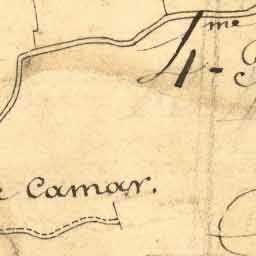 4-me
e Camar.